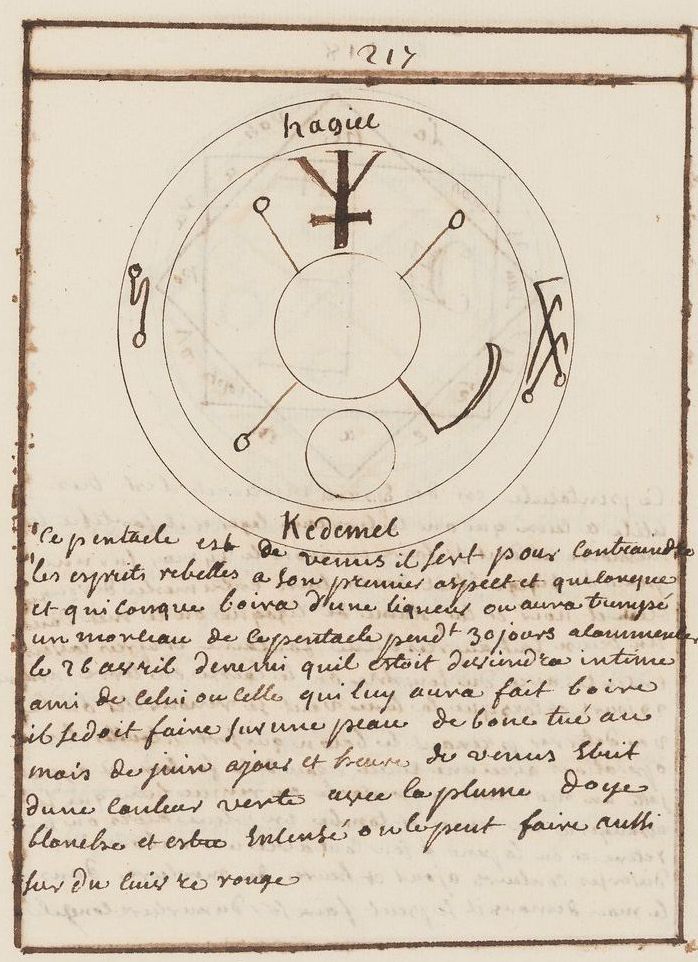 217
hagiel
Kedemel
Ce pentacle est de venus il sert pour contraindre
les esprits rebelles a son premier aspect et quelonque
et quiconque boira d'une liqueur ou aura trempé
un morceau de ce pentacle pendt 30 jours a commencer
le 26 avril dennemi quil estoit deviendra intime
ami de celui ou celle qui luy aura fait boire
il se doit faire sur une peau de bouc tué au
mois de juin a jour et heure de venus
dune couleur verte avec la plume doye
blanche et estre Ensensé on le peut faire aussi
sur du cuivre rouge